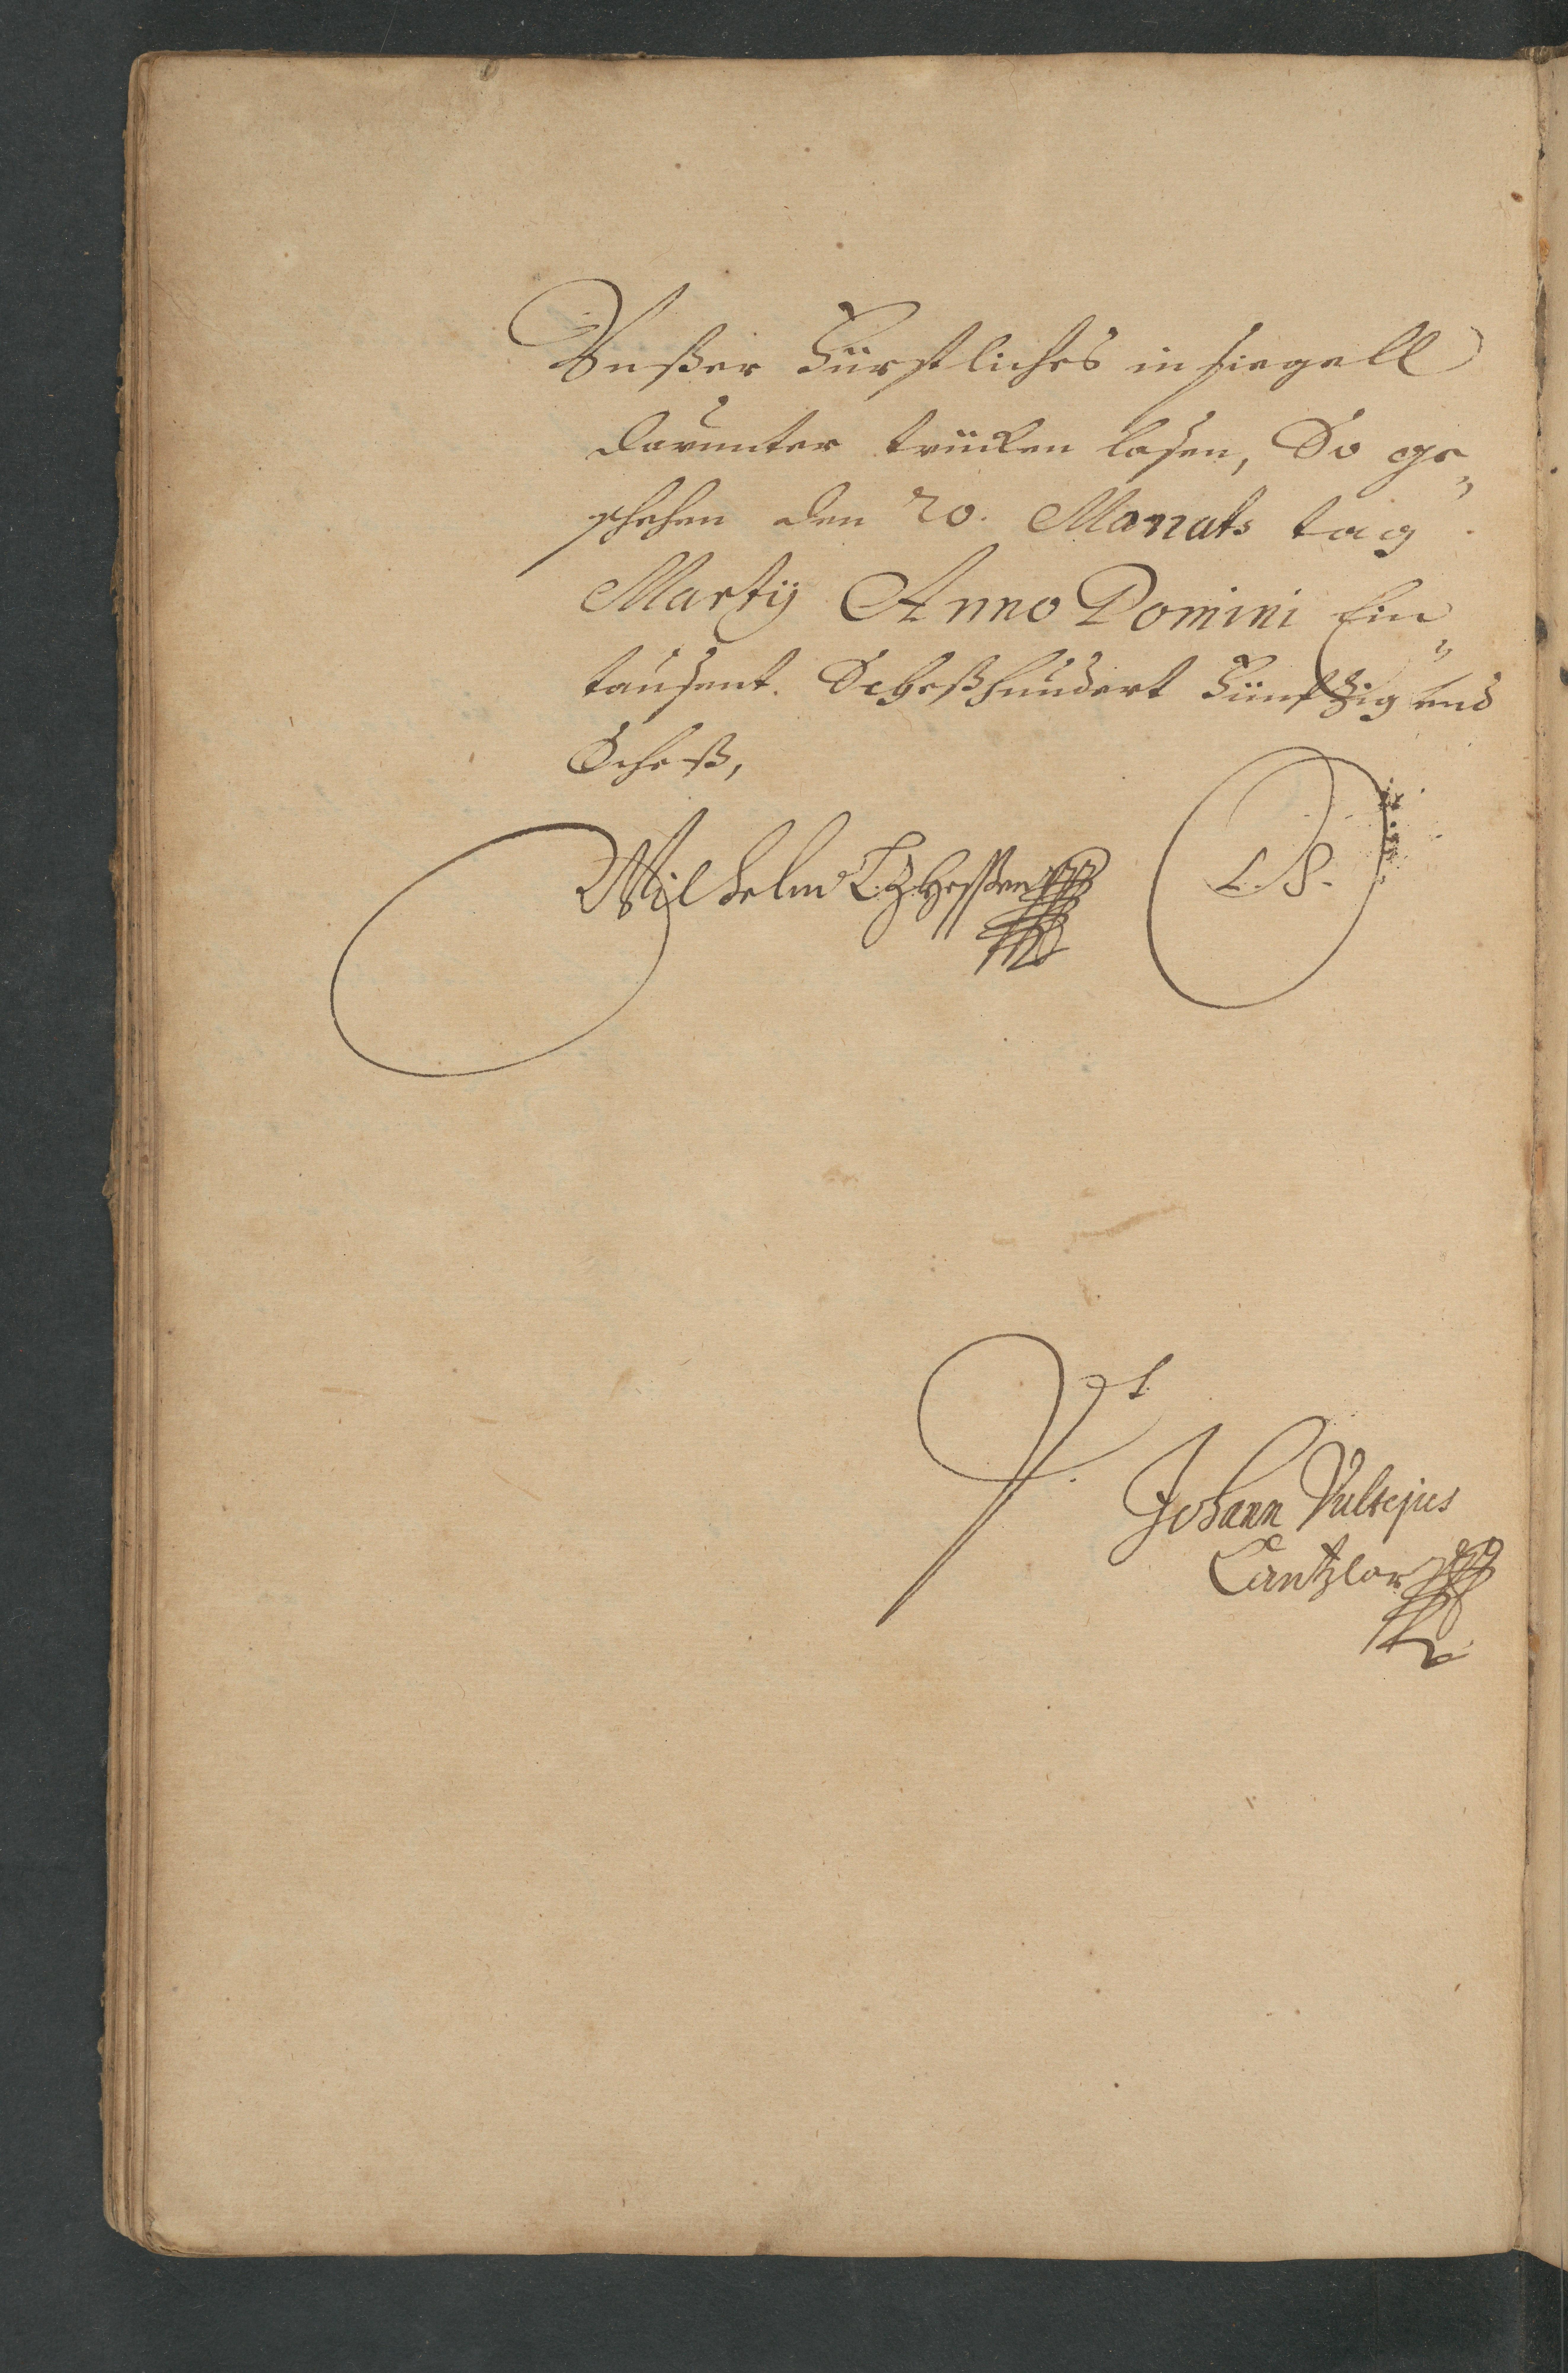 Vnßer Fürstliches insiegell
darunter trücken lasen, So ge„
schehen den 20. Monats tag
Martij Anno Domini Ein„
tausent. Sechßhundert Fünfzig und
Sechß,
Wilhelm L Z Hessen
L. S.
Vt
Johann Vultejus
Cantzlar